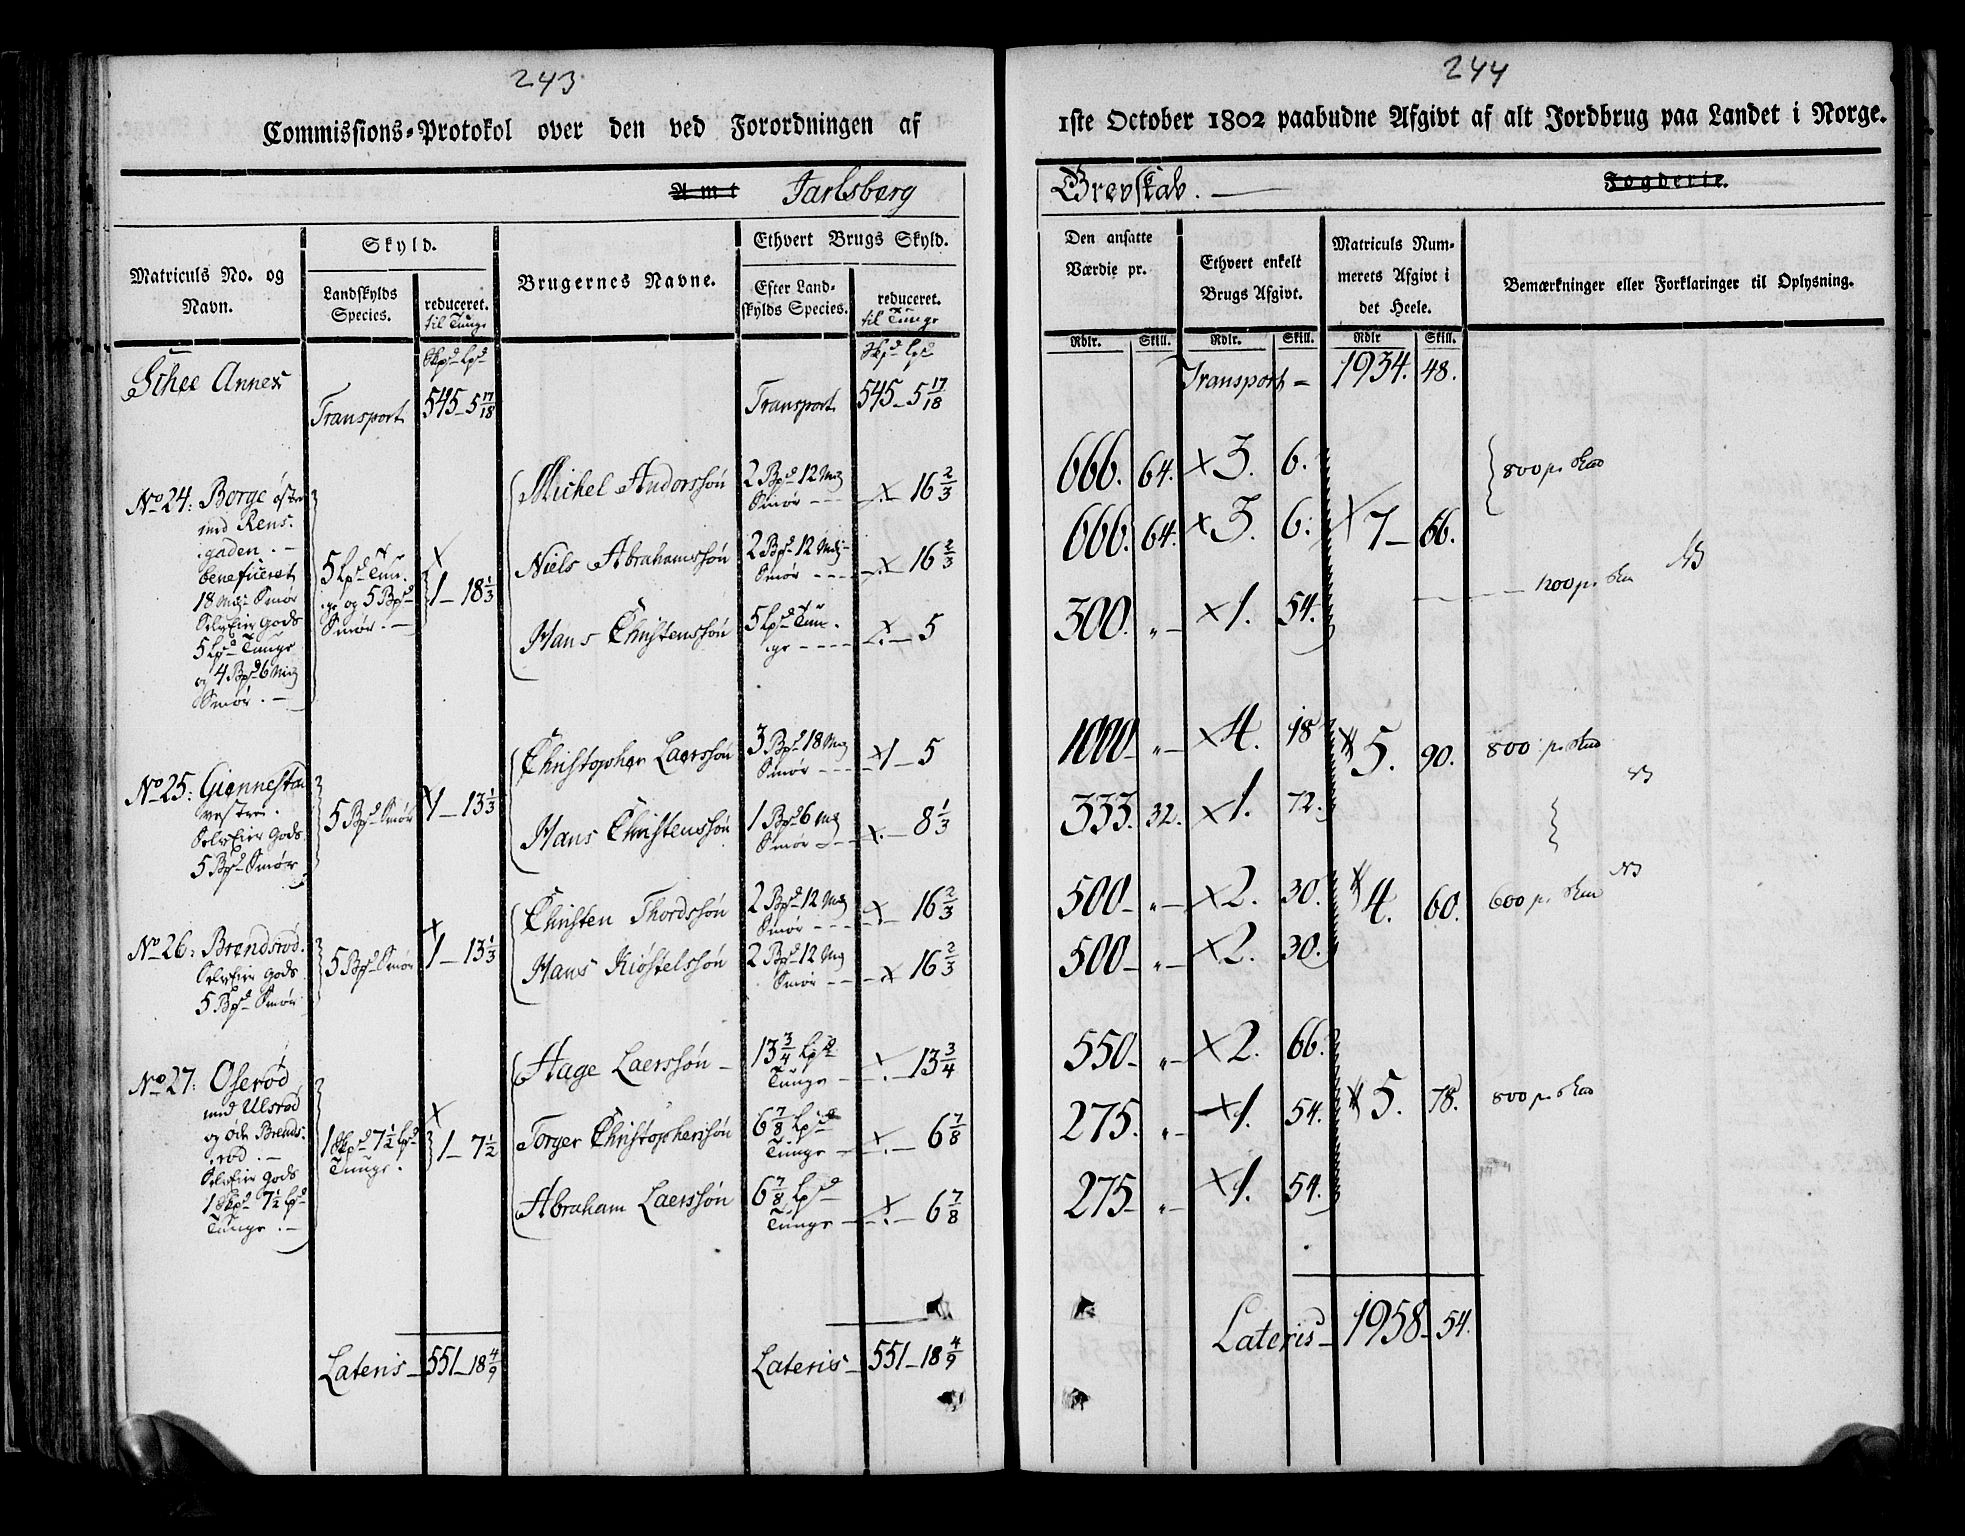 243
Commissions-Protokol over den ved Forordningen af
Amt Jarlsberg
Matriculs No. og Navn.
Skyld.
Landskylds Species.
reduceret.
til Tunge
Brugernes Navne.
Ethvert Brugs Skyld.
Efter Landskylds Species.
reduceret.
til Tunge
Schee Annex
Skpd Lpd
Skpd Lpd
Transport 545 - 5 17/18 Transport 545 - 5 17/18
No 24: Borge østre
med Rens-
gaden. -
beneficeret
18 Mrk Smør
SelvEier Gods
5 Lpd Tunge
og 4 Bpd 6 Mrk
Smør. -
5 Lpd Tun-
ge og 5 Bpd
Smør. -
1 - 18 1/3
Michel Andorssøn 2 Bpd 12 Mrk
Smør - - - 16 2/3
Niels Abrahamssøn 2 Bpd 12 Mrk
Smør - - - 16 2/3
Hans Christenssøn 5 Lpd Tun-
ge - - - - 5
No 25: Giennestad
vestre.
SelvEier Gods
5 Bpd Smør
5 Bpd Smør
1 - 13 1/3
Christopher Laerssøn 3 Bpd 18 Mrk
Smør - - - 1 - 5
Hans Christenssøn 1 Bpd 6 Mrk
Smør - - - 8 1/3
No 26: Brendsrød.
SelvEier Gods
5 Bpd Smør
5 Bpd Smør
1 - 13 1/3
Christen Thordssøn 2 Bpd 12 Mrk
Smør - - - 16 2/3
Hans Kiøstelssøn 2 Bpd 12 Mrk
Smør - - - 16 2/3
No 27: Oserød
med Ulsrød
og øde Brends-
rød. -
SelvEier Gods
1 Skpd 7 1/2 Lpd
Tunge. -
1 Skpd 7 1/2 Lpd
Tunge.
1 - 7 1/2
Hage Laerssøn - 13 3/4 Lpd
Tunge - - 13 3/4
Torger Christopherssøn 6 7/8 Lpd
Tunge - - 6 7/8
Abraham Laerssøn 6 7/8 Lpd
Tunge - - 6 7/8
Lateris - 551 - 18 4/9 Lateris - 551 - 18 4/9
244
1ste October 1802 paabudne Afgivt af alt Jordbrug paa Landet i Norge.
Grevskab. - Fogderie.
Den ansatte Værdie pr.
Ethvert enkelt Brugs Afgivt.
Matriculs Nummerets Afgivt i det Heele.
Bemærkninger eller Forklaringer til Oplysning.
Rdlr. Skill. Rdlr. Skill. Rdlr Skill.
Transport - 1934. 48.
666. 64. × 3. 6. 800 p.
666. 64. × 3. 6. × 7 - 66.
NB
300. " - × 1. 54. 1200 p.
1000 - " - × 4. 18 × 5. 90. 800 p.
NB
333. 32. × 1. 72.
NB
500 - " - × 2. 30. × 4. 60. 600 p.
500 - " - × 2. 30.
550 - " - × 2. 66.
275. " - × 1. 54. × 5. 78. 800 p.
275 - " - × 1. 54.
Lateris - 1958 - 54.